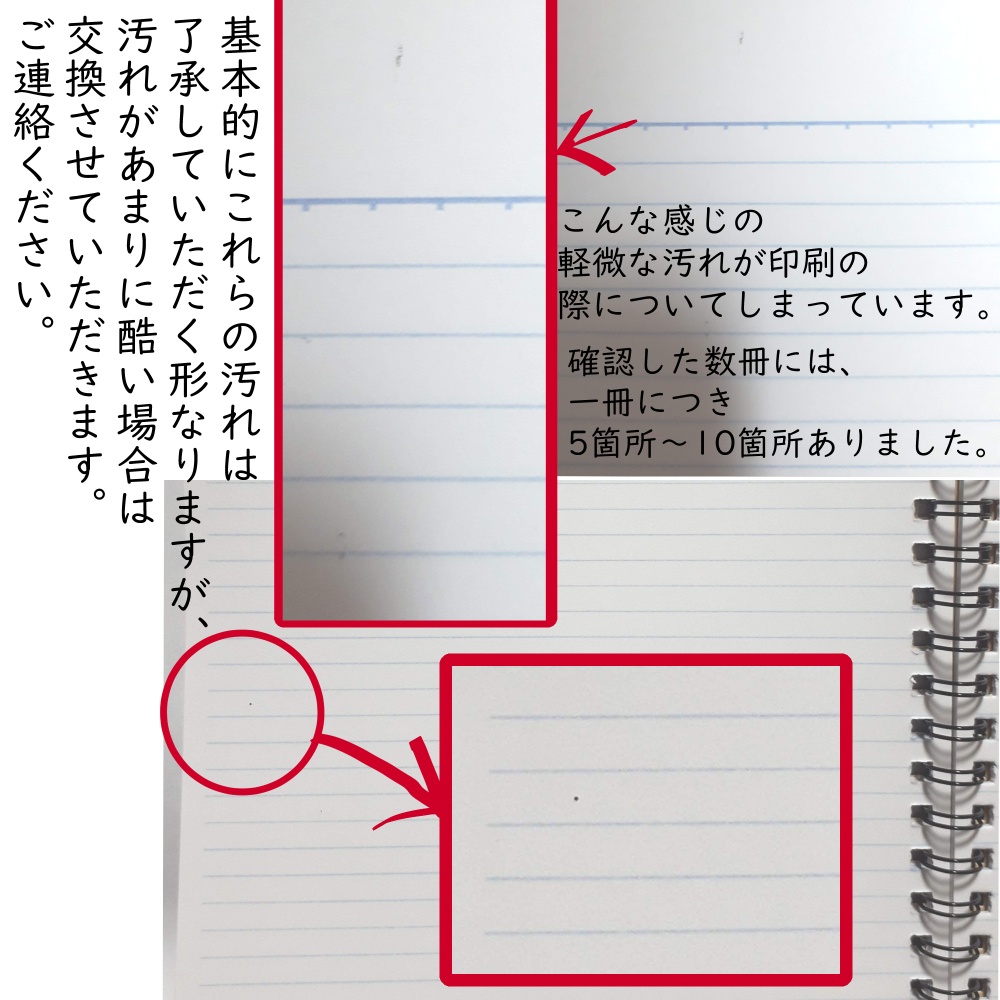 こんな感じの
軽微な汚れが印刷の
際についてしまっています。
確認した数冊には、
一冊につき
5箇所～10箇所ありました。
基本的にこれらの汚れは
了承していただく形なりますが、
汚れがあまりに酷い場合は
交換させていただきます。
ご連絡ください。